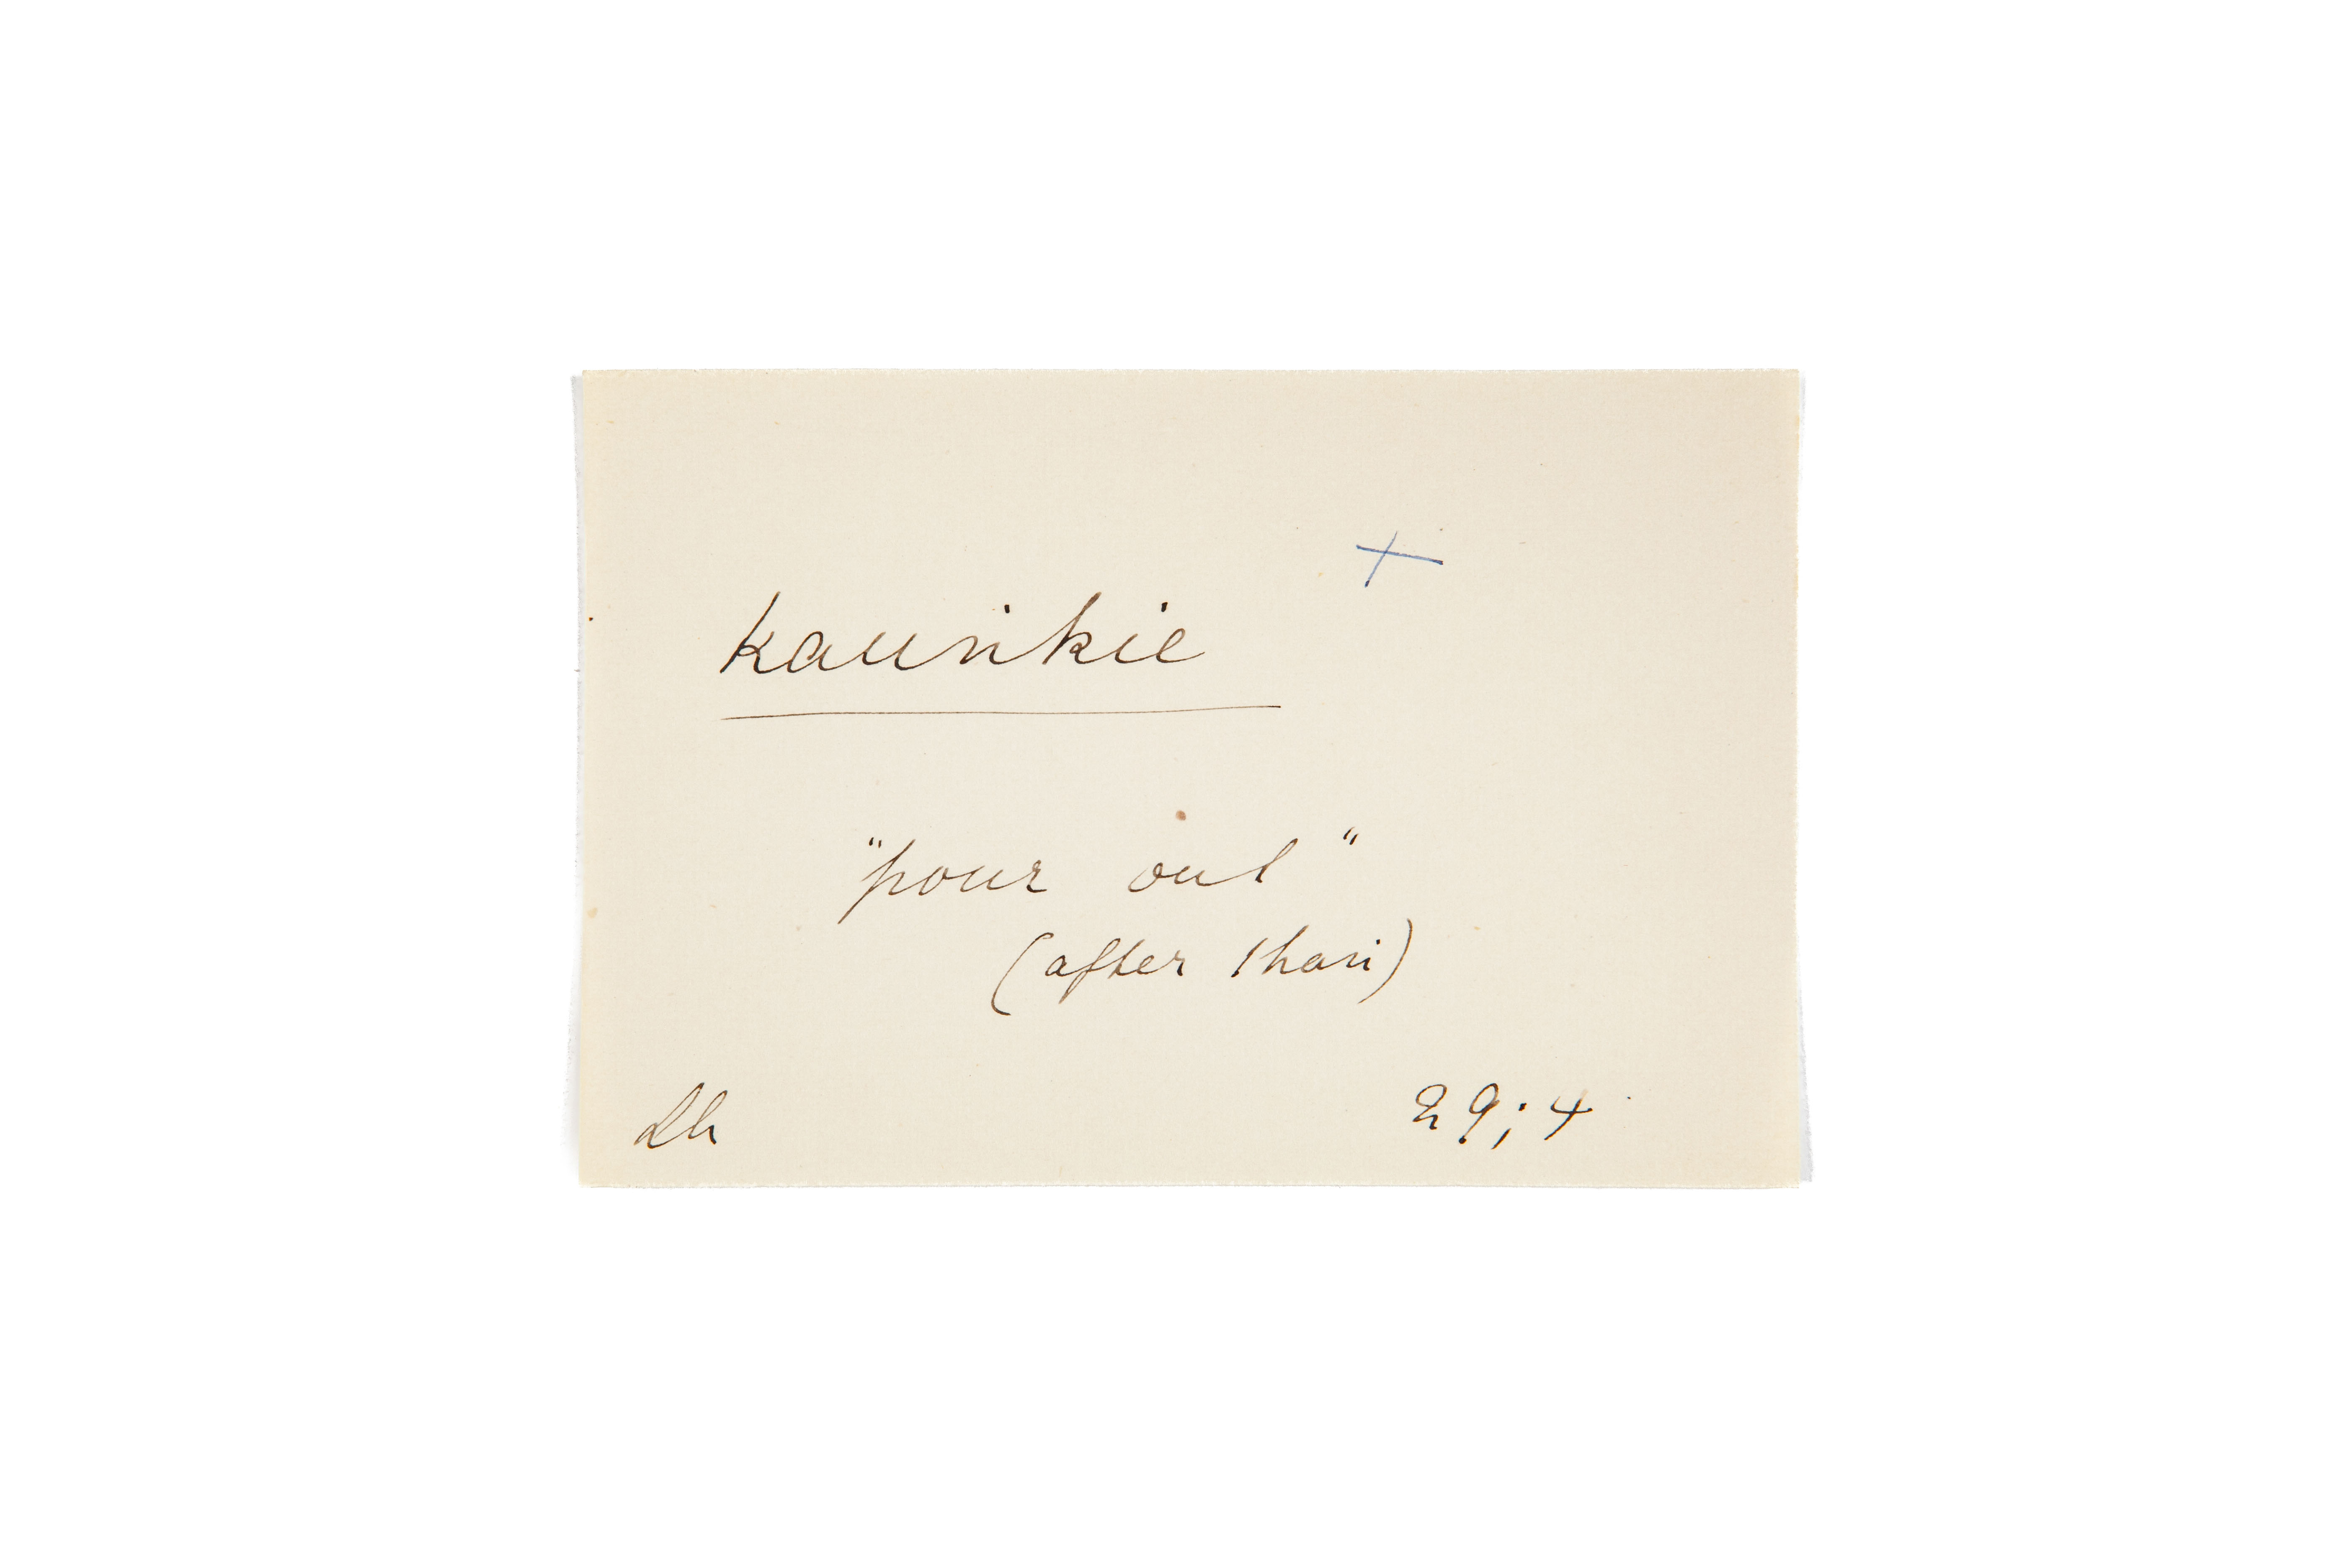 +
kauṅkie
"pour out"
(after thaṅ)
Lh
29; 4